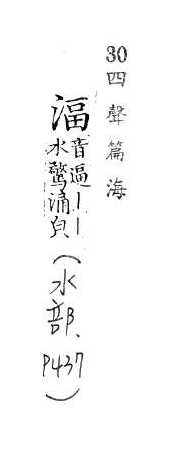 30四聲篇海
湢音逼丨丨水驚涌皃(水部、P437)